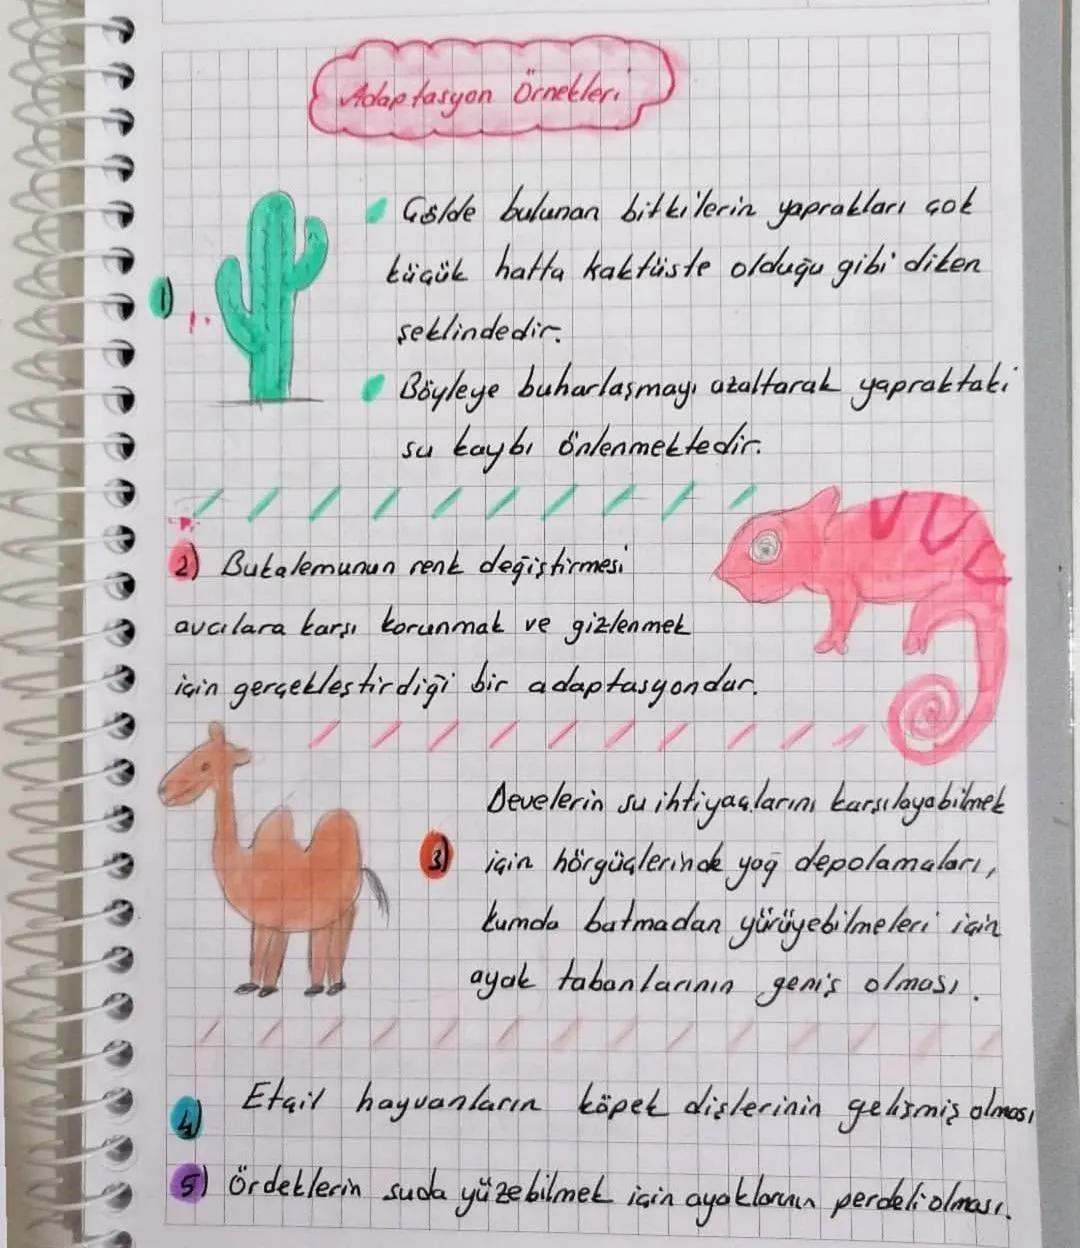 Adaptasyon Örnekleri
1)
Çölde bulunan bitkilerin yaprakları çok
küçük hatta kaktüste olduğu gibi diken
şeklindedir.
Böyleye buharlaşmayı azaltarak yapraktaki
su kaybı önlenmektedir.
2) Bukalemunun renk değiştirmesi
avcılara karşı korunmak ve gizlenmek
için gerçekleştirdiği bir adaptasyondur.
Develerin su ihtiyaçlarını karşılayabilmek
3) için hörgüçlerinde yağ depolamaları,
kumda batmadan yürüyebilmeleri için
ayak tabanlarının geniş olması.
4) Etçil hayvanların köpek dişlerinin gelişmiş olması
5) Ördeklerin suda yüzebilmek için ayaklarının perdeli olması.